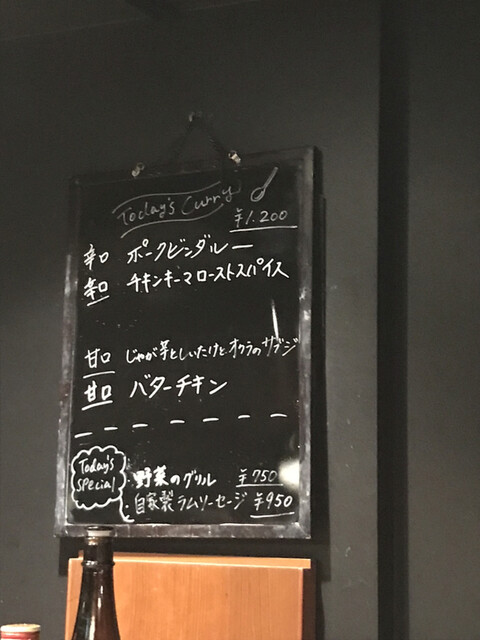 Today's Curry
¥1.200
辛口 ポークビンダルー
辛口 チキンキーマローストスパイス
甘口 じゃが芋としいたけと、オクラのサブジ
甘口 バターチキン
Today's
special
・野菜のグリル ¥750
・自家製ラムソーセージ ¥950